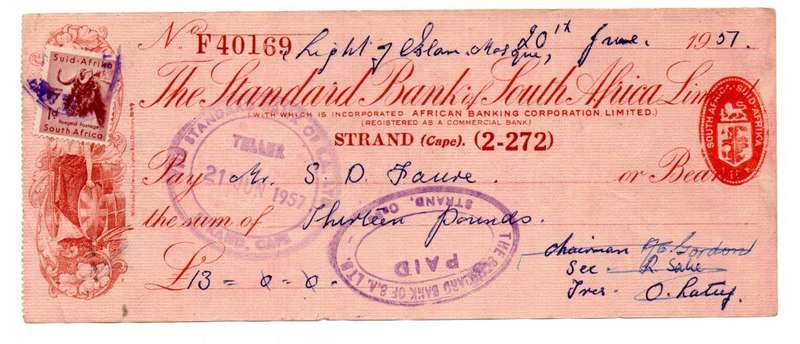 No F40169 Light of Islam Mosque, 20th June. 1957.
The Standard Bank of South Africa Limited
(WITH WHICH IS INCORPORATED AFRICAN BANKING CORPORATION LIMITED.)
(REGISTERED AS A COMMERCIAL BANK)
STRAND (Cape). (2-272)
Pay Mr. S. D. Faure. or Bearer
the sum of Thirteen Pounds.
£13 = 0 - 0.
Chairman Gordon
Sec - R Salie
Tres. O. Latief.
Suid-Afrika
South Africa
SOUTH AFRICA SUID-AFRIKA
STANDARD BANK OF S.A. LTD
TELLER
21 JUN 1957
STRAND, CAPE
THE STANDARD BANK OF S.A. LTD.
PAID
STRAND,